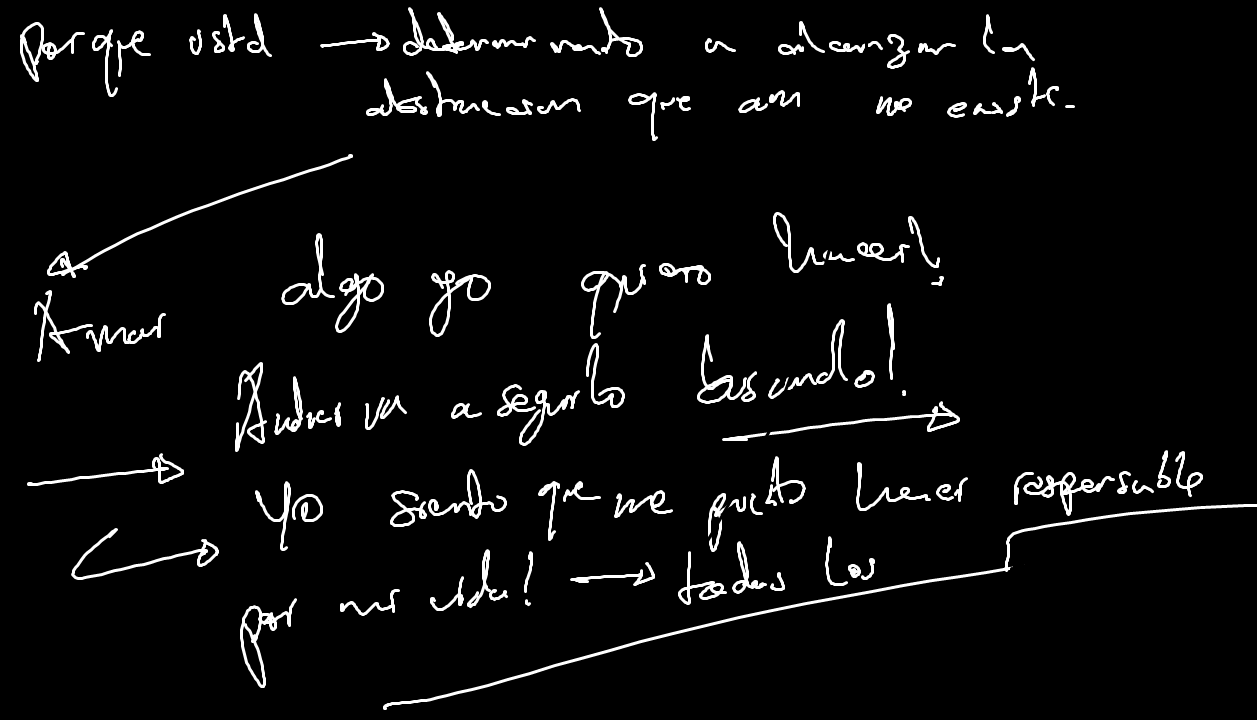 Porque ustd → a alcanzar la
abstraccion que aun no existe.
algo yo quiero hacer!
Amar
Andres va a seguirlo buscando!
Yo siento que me puedo hacer responsable
por mi vida! → todas los